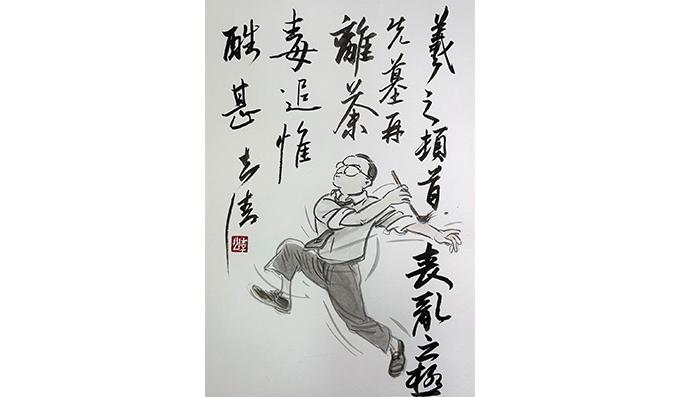 羲之頓首喪亂之極
先墓再
離荼
毒追惟
酷甚